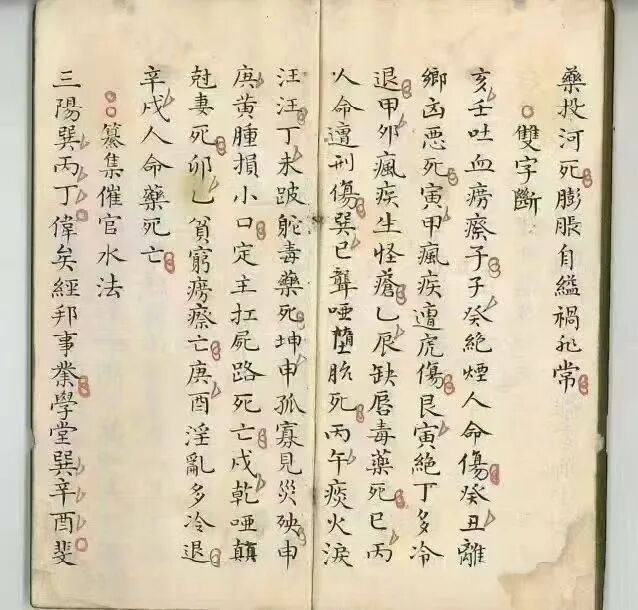 藥投河死膨脹自縊禍非常
雙字斷
亥壬吐血癆瘵子子癸絶煙人命傷癸丑離
鄉凶惡死寅甲瘋疾遭虎傷艮寅絶丁多冷
退甲夘瘋疾生怪瘡乙辰缺唇毒藥死巳丙
人命遭刑傷巽巳聾啞墮胎死丙午痰火淚
汪汪丁未跛駝毒藥死坤申孤寡見災殃申
庚黄腫損小口定主扛屍路死亡戌乾啞顛
尅妻死卯乙貧窮癆瘵亡庚酉淫亂多冷退
辛戌人命藥死亡
纂集催官水法
三陽巽丙丁偉矣經邦事業學堂巽辛酉斐